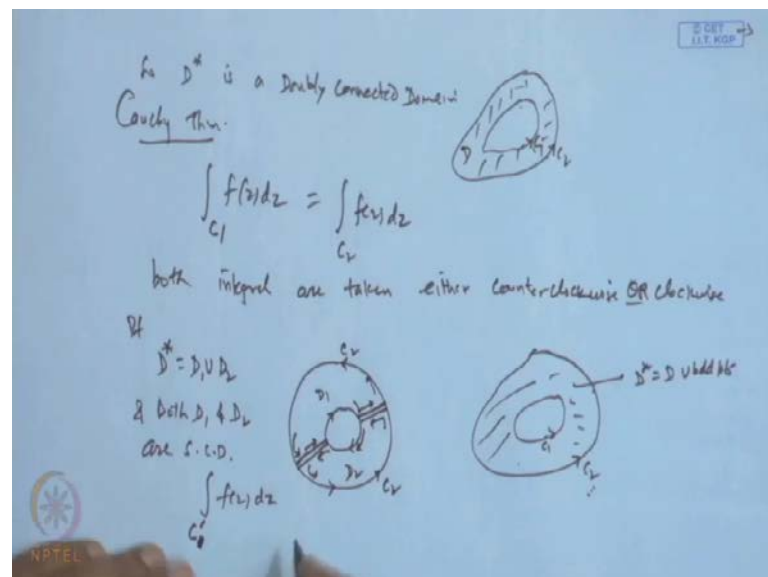 © CET
I.I.T. KGP
D* is a Doubly connected Domain
Cauchy Thm.
D C1 C2
∫C1 f(z)dz = ∫C2 f(z)dz
both integral are taken either counterclockwise OR clockwise
Pf
D* = D1 ∪ D2
& Both D1 & D2
are S.C.D.
C2 D1 D2 C2
D* = D ∪ bdd pts
C1 C2
∫ f(z)dz
NPTEL